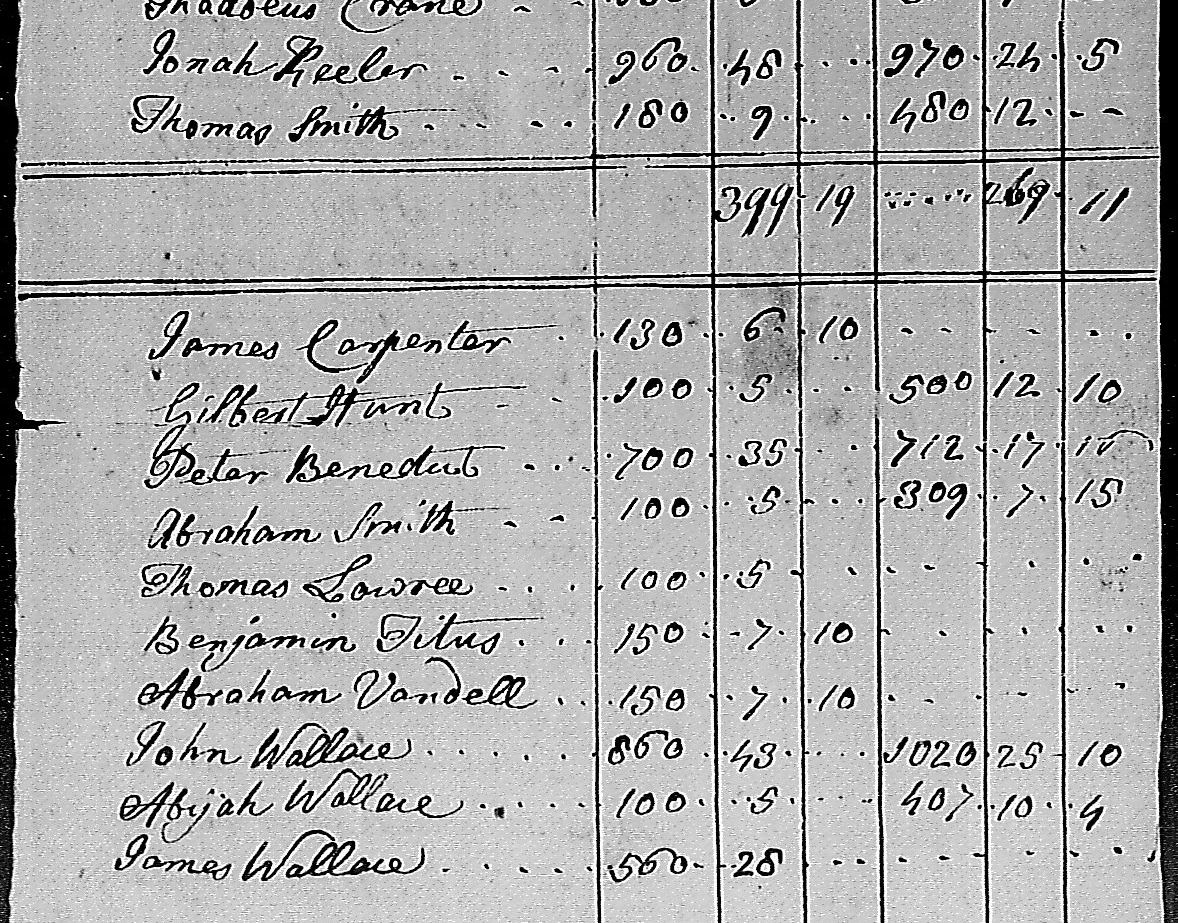 Thaddeus Crane
Jonah Keeler 960 48 970 24 5
Thomas Smith 180 9 480 12
399 19 269 11
James Carpenter 130 6 10
Gilbert Hunt 100 5 500 12 10
Peter Benedict 700 35 712 17
Abraham Smith 100 5 309 7 15
Thomas Lowree 100 5
Benjamin Titus 150 7 10
Abraham Vandell 150 7 10
John Wallace 860 43 1020 25 10
Abijah Wallace 100 5 407 10 4
James Wallace 560 28